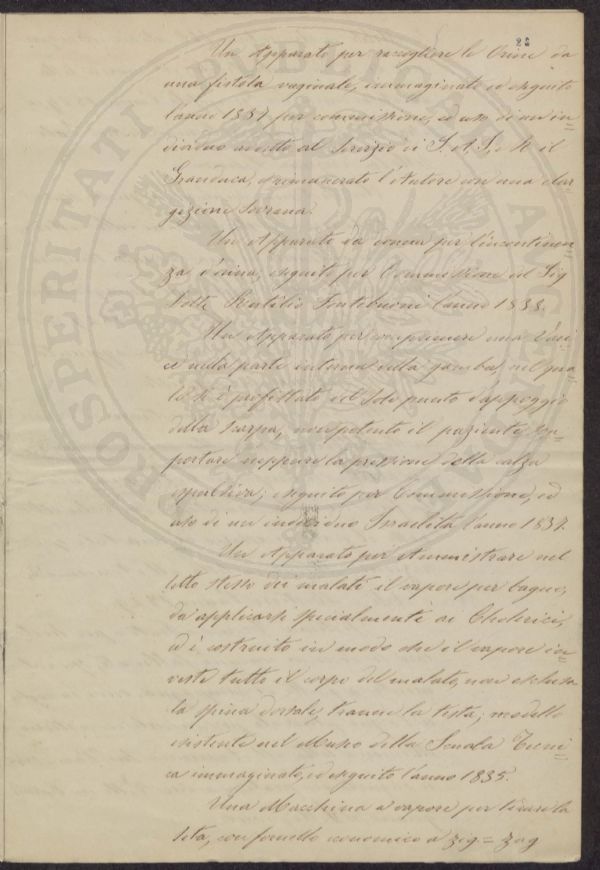 28
Un Apparato per raccogliere le Orine da
una fistola vaginale, immaginato ed eseguito
l'anno 1837 per commissione, ed uso di un in=
dividuo addetto al Servizio di S. A. I. e R. il
Granduca, e rimunerato l'Autore con una elar=
gizione Sovrana.
Un Apparato da donna per l'incontinen=
za d'orina, eseguito per Commissione del Sig.
Dott. Rutilio Fontebuoni l'anno 1838.
Un Apparato per comprimere una Vari=
ce nella parte interna della gamba, nel qua=
le si è profittato del solo punto d'appoggio
della scarpa, non potendo il paziente sop=
portare neppure la pressione della calza
espulsiva; eseguito per Commissione, ed
uso di un individuo Israelita l'anno 1837.
Un Apparato per Amministrare nel
letto stesso dei malati il vapore per bagno,
da applicarsi specialmente ai Cholerici,
ed è costruito in modo che il vapore in=
veste tutto il corpo del malato, non esclusa
la spina dorsale, tranne la testa; modello
esistente nel Museo della Scuola Tecni=
ca immaginato, ed eseguito l'anno 1835.
Una Macchina a vapore per tirare la
Seta, con fornello economico a zig=zag
PROSPERITATI PUBLICAE